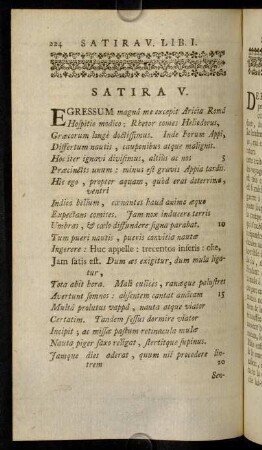 224 SATIRA V. LIB. I.
SATIRA V.
EGRESSUM magnâ me excepit Aricia Româ
Hospitio modico: Rhetor comes Heliodorus,
Græcorum longè doctissimus. Inde Forum Appi,
Differtum nautis, cauponibus atque malignis.
Hoc iter ignavi divisimus, altiùs ac nos 5
Præcinctis unum: minus est gravis Appia tardis.
Hic ego, propter aquam, quòd erat deterrima,
ventri
Indico bellum, cœnantes haud animo æquo
Expectans comites. Jam nox inducere terris
Umbras, & cœlo diffundere signa parabat. 10
Tum pueri nautis, pueris convitia nautæ
Ingerere: Huc appelle: trecentos inseris: ohe,
Jam satis est. Dum æs exigitur, dum mula liga-
tur,
Tota abit hora. Mali culices, ranæque palustres
Avertunt somnos: absentem cantat amicam 15
Multâ prolutus vappâ, nauta atque viator
Certatim. Tandem fessus dormire viator
Incipit; ac missæ pastum retinacula mulæ
Nauta piger saxo religat, stertitque supinus.
Jamque dies aderat, quum nil procedere lin-
trem 20
Sen-